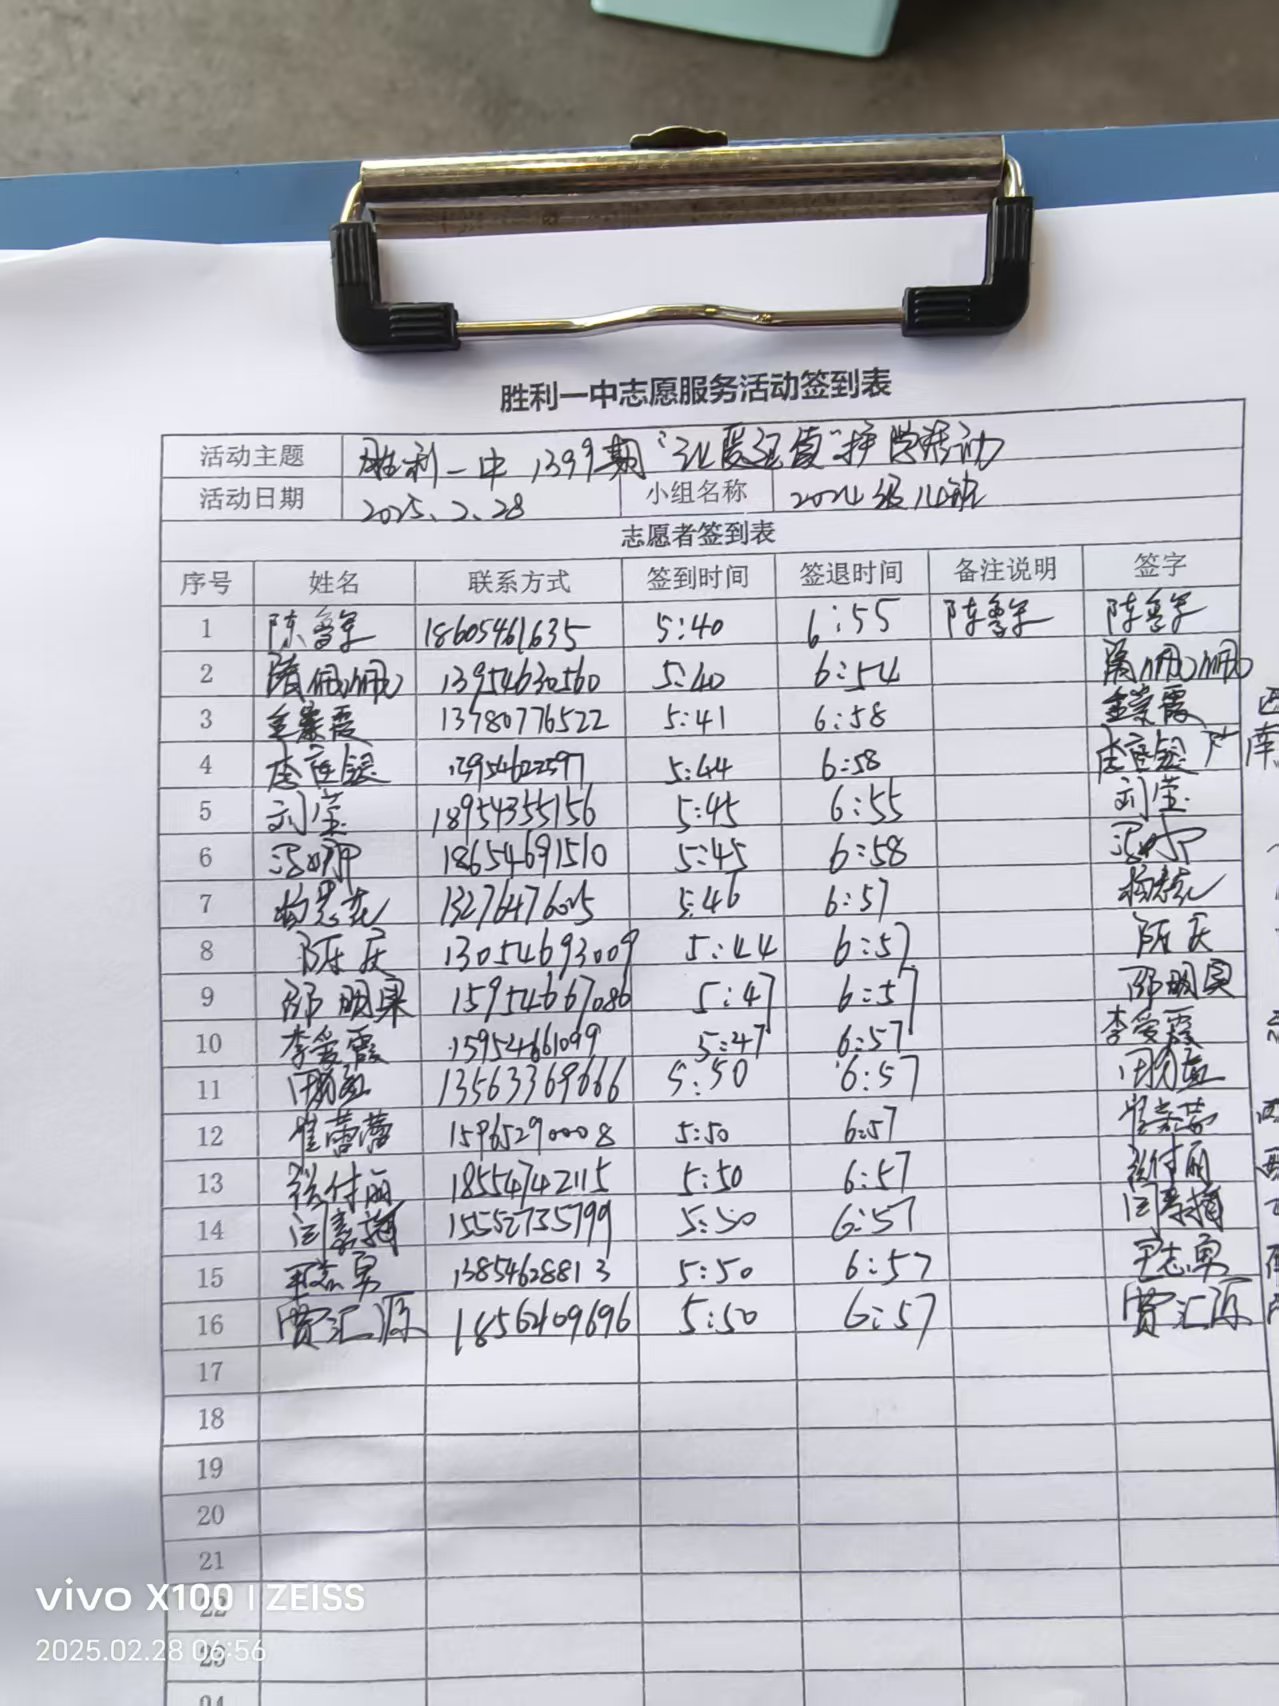 胜利一中志愿服务活动签到表
活动主题 胜利一中 1399期 护学活动
活动日期 2025.2.28 小组名称 2024级
志愿者签到表
序号 姓名 联系方式 签到时间 签退时间 备注说明 签字
1 陈雪军 18605461635 5:40 6:55 陈雪军 陈雪军
2 隋佩佩 13954630560 5:40 6:54 隋佩佩
3 13780776522 5:41 6:58
4 13954622597 5:44 6:58
5 刘莹 18954355156 5:45 6:55 刘莹
6 18654691510 5:45 6:58
7 13276476025 5:46 6:57
8 陈庆 13054693009 5:44 6:57 陈庆
9 邵明真 15954667086 5:47 6:57 邵明真
10 李爱霞 159524661099 5:47 6:57 李爱霞
11 13563369666 5:50 6:57
12 崔蕾蕾 15965290008 5:50 6:57 崔蕾蕾
13 18554742115 5:50 6:57
14 15552735799 5:50 6:57
15 王志勇 13854628813 5:50 6:57 王志勇
16 贾汇源 18562109696 5:50 6:57 贾汇源
17
18
19
20
21
22
23
24
vivo X100 | ZEISS
2025.02.28 06:56